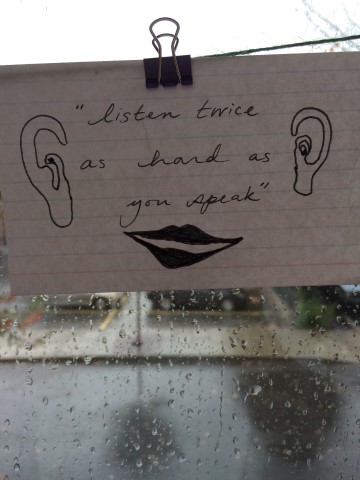 "listen twice
as hard as
you speak"